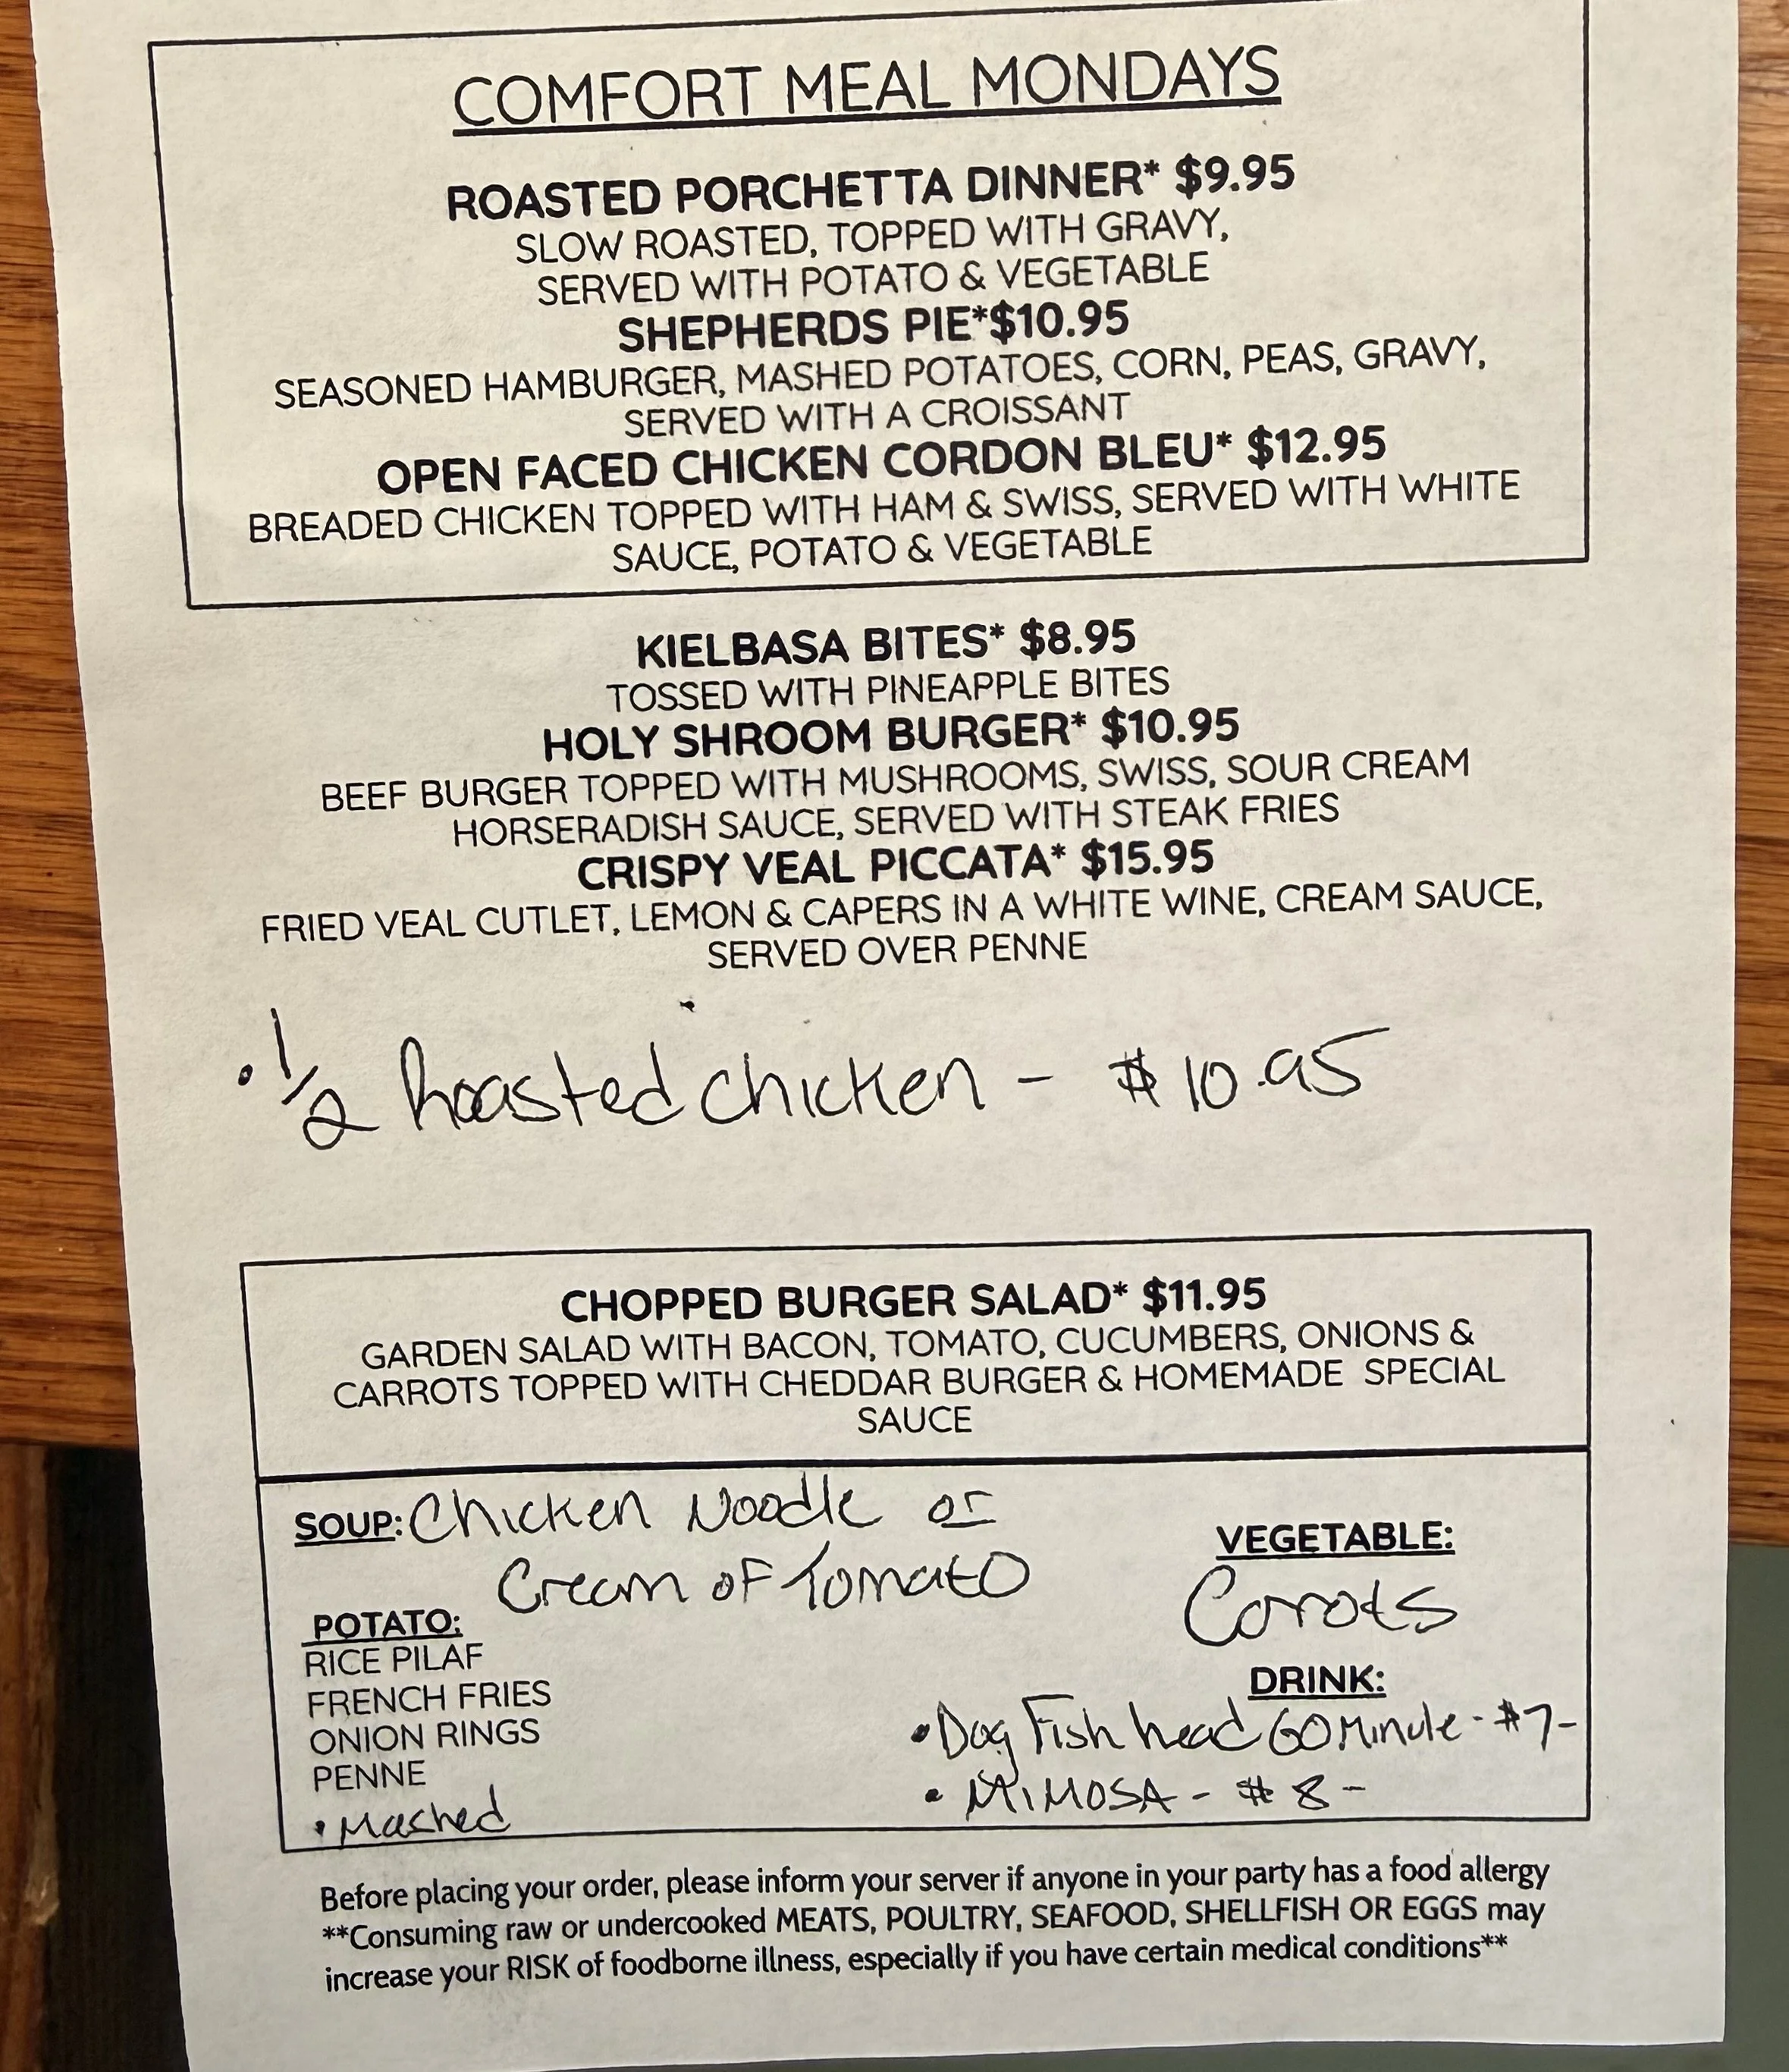 COMFORT MEAL MONDAYS
ROASTED PORCHETTA DINNER* $9.95
SLOW ROASTED, TOPPED WITH GRAVY,
SERVED WITH POTATO & VEGETABLE
SHEPHERDS PIE*$10.95
SEASONED HAMBURGER, MASHED POTATOES, CORN, PEAS, GRAVY,
SERVED WITH A CROISSANT
OPEN FACED CHICKEN CORDON BLEU* $12.95
BREADED CHICKEN TOPPED WITH HAM & SWISS, SERVED WITH WHITE
SAUCE, POTATO & VEGETABLE
KIELBASA BITES* $8.95
TOSSED WITH PINEAPPLE BITES
HOLY SHROOM BURGER* $10.95
BEEF BURGER TOPPED WITH MUSHROOMS, SWISS, SOUR CREAM
HORSERADISH SAUCE, SERVED WITH STEAK FRIES
CRISPY VEAL PICCATA* $15.95
FRIED VEAL CUTLET, LEMON & CAPERS IN A WHITE WINE, CREAM SAUCE,
SERVED OVER PENNE
• 1/2 Roasted chicken - $10.95
CHOPPED BURGER SALAD* $11.95
GARDEN SALAD WITH BACON, TOMATO, CUCUMBERS, ONIONS &
CARROTS TOPPED WITH CHEDDAR BURGER & HOMEMADE SPECIAL
SAUCE
SOUP: Chicken Noodle or
Cream of Tomato
POTATO:
RICE PILAF
FRENCH FRIES
ONION RINGS
PENNE
• Mashed
VEGETABLE:
Carrots
DRINK:
• Dog Fish head 60 Minute - $7-
• MIMOSA - $8-
Before placing your order, please inform your server if anyone in your party has a food allergy
**Consuming raw or undercooked MEATS, POULTRY, SEAFOOD, SHELLFISH OR EGGS may
increase your RISK of foodborne illness, especially if you have certain medical conditions**